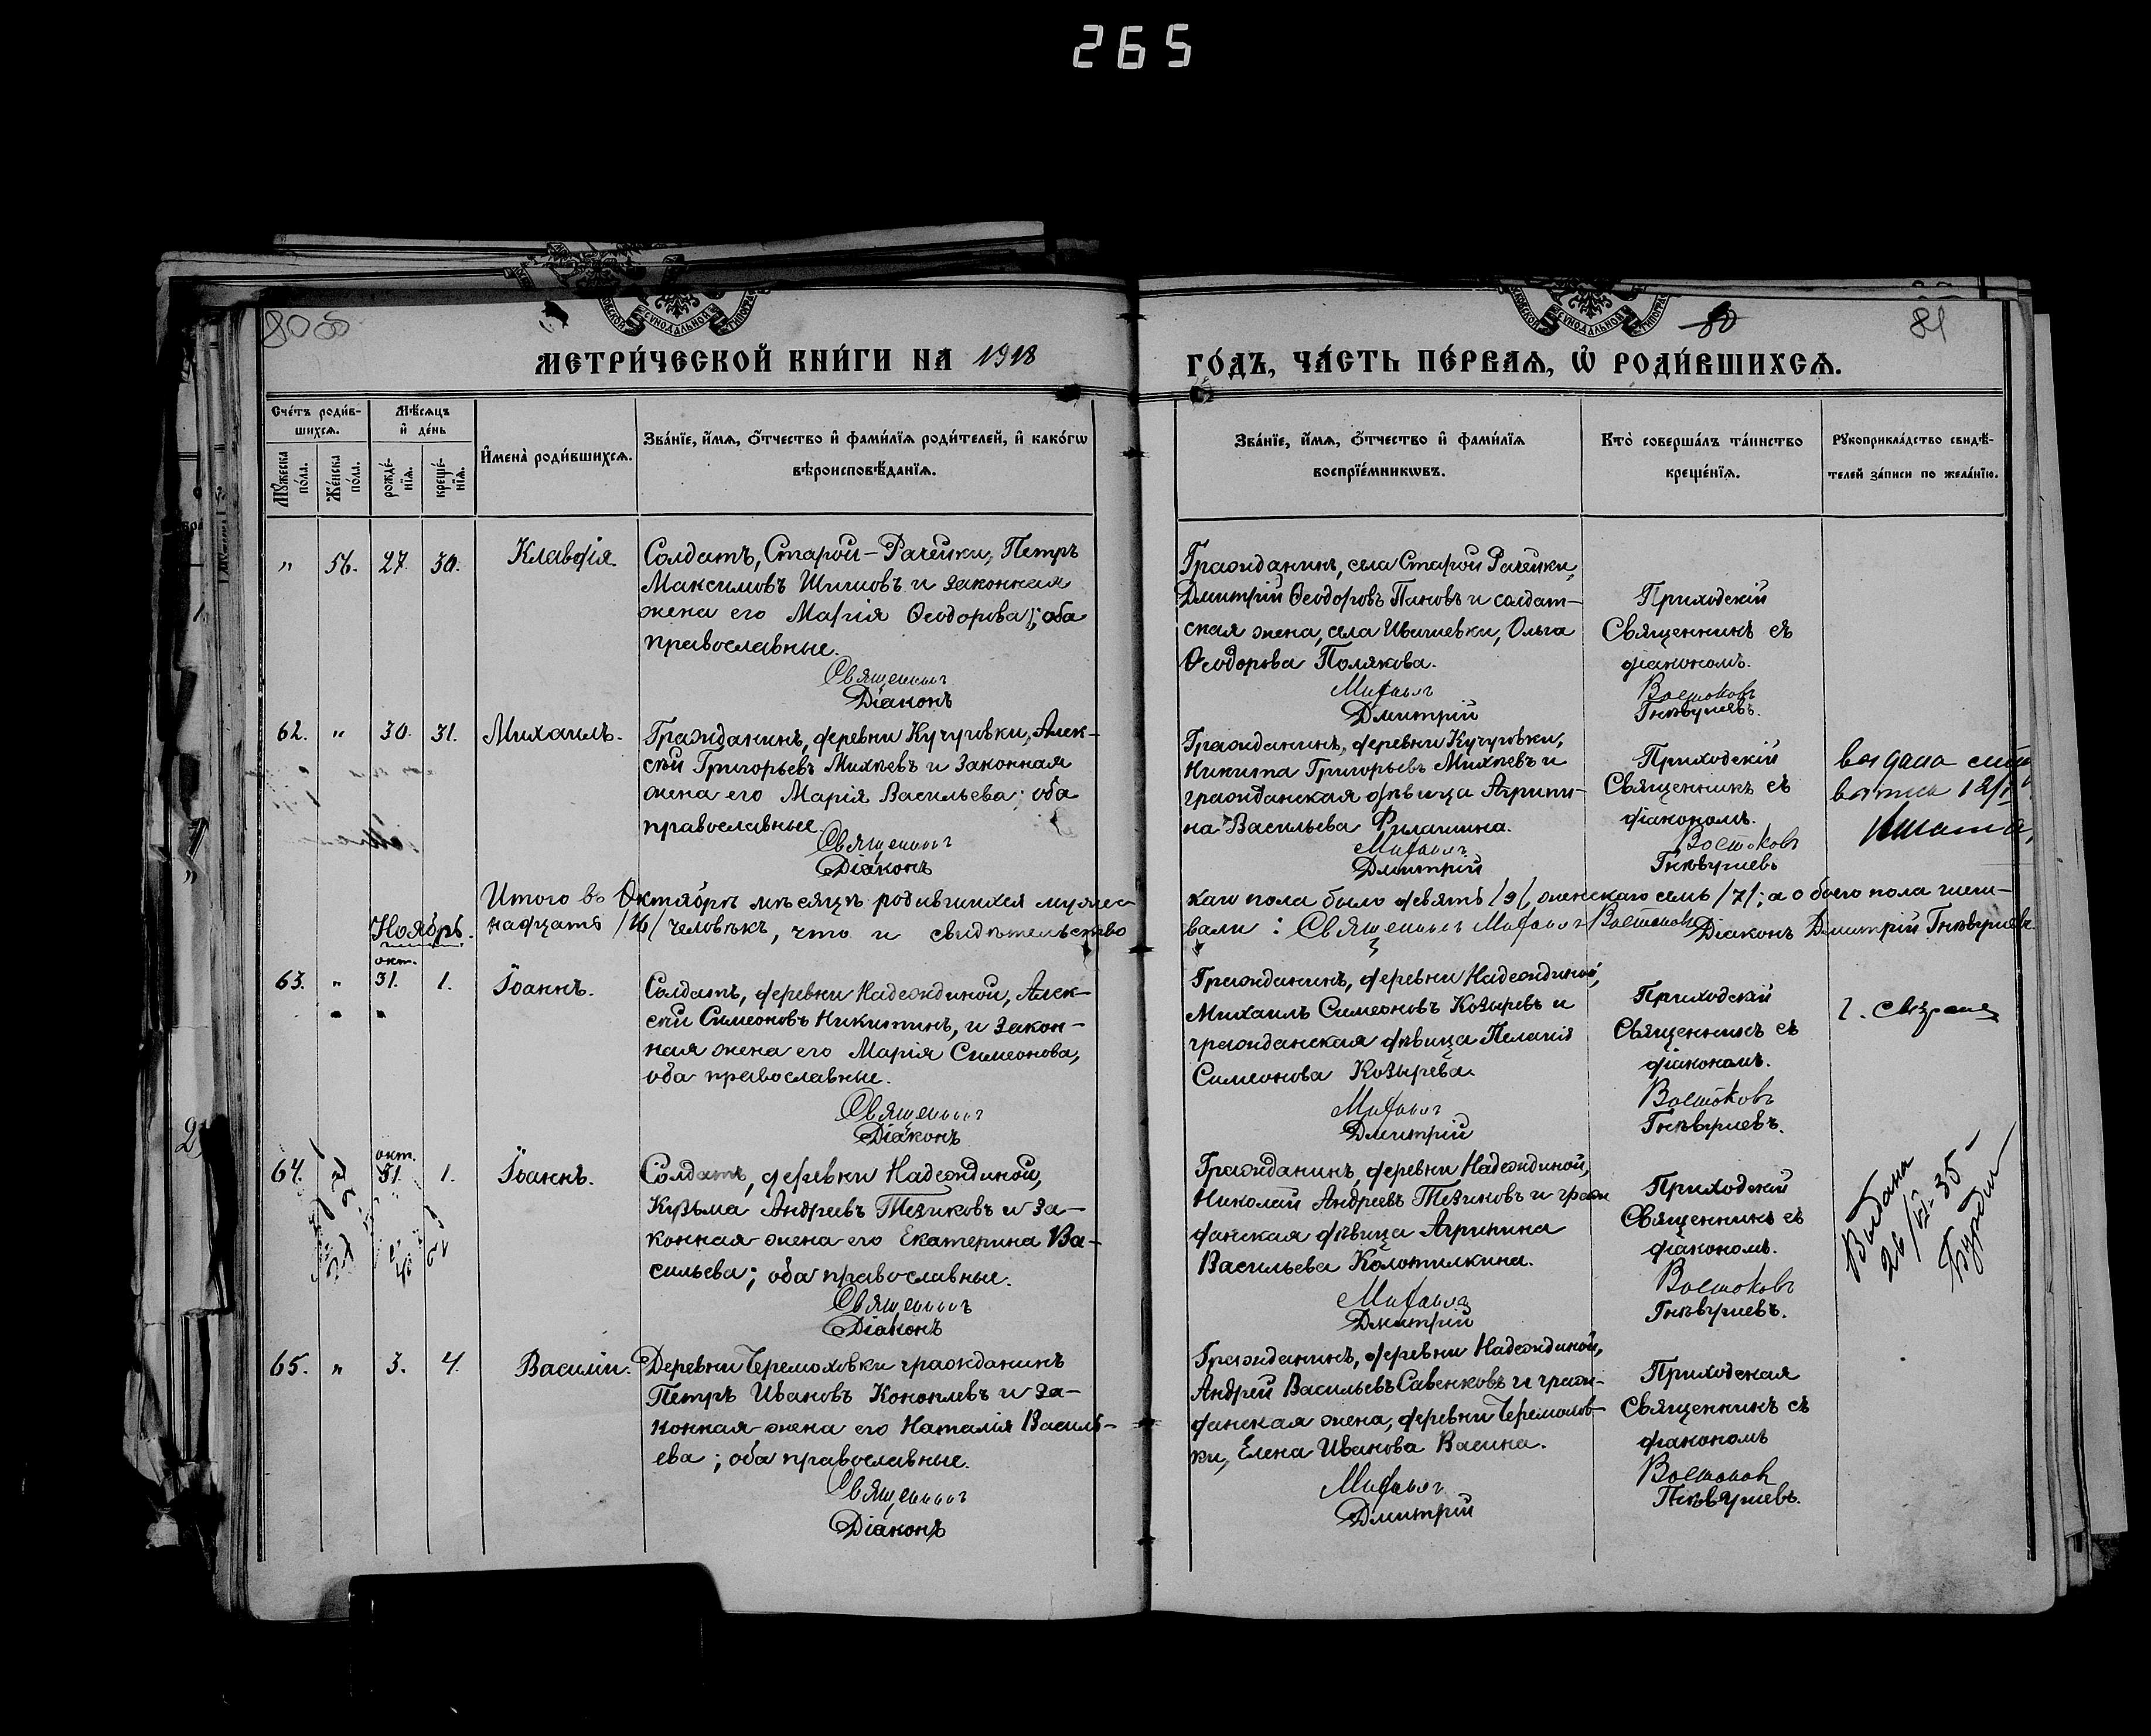 265
80
80
81
МЕТРИ́ЧЕСКОЙ КНИ́ГИ НА 1918
ГО́ДЪ, ЧА́СТЬ ПЕ́РВАѦ, Ѡ҆ РОДИ́ВШИХСѦ.
Сче́тъ роди́в-
шихсѧ.
Мѣ́сѧцъ
и҆ де́нь
И҆мена̀ роди́вшихсѧ.
Зва́нїе, и҆́мѧ, ѻ҆́тчество и҆ фами́лїѧ роди́телей, и҆ како́гѡ
вѣроисповѣ́данїѧ.
Мꙋ́жеска
по́ла.
Же́нска
по́ла.
рожде́-
нїѧ.
креще́-
нїѧ.
Зва́нїе, и҆́мѧ, ѻ҆́тчество и҆ фами́лїѧ
воспрїе́мникѡвъ.
Кто̀ соверша́лъ та́инство
креще́нїѧ.
Рꙋкоприкла́дство свидѣ́-
телей за́писи по жела́нїю.
" 56. 27. 30. Клавдія.
Солдатъ, Старой-Рачейки, Петръ
Максимовъ Шишовъ и законная
жена его Марія Ѳеодорова; оба
православные.
Священникъ
Діаконъ
Гражданинъ, села Старой Рачейки,
Дмитрій Ѳеодоровъ Пиновъ и солдат-
ская жена, села Ивашевки, Ольга
Ѳеодорова Полякова.
Михаилъ
Дмитрій
Приходскій
Священникъ съ
діакономъ.
Востоковъ
Гнѣвушевъ.
62. " 30. 31. Михаилъ.
Гражданинъ, деревни Кучуровки, Алек-
сѣй Григорьевъ Михѣевъ и законная
жена его Марія Васильева; оба
православные.
Священникъ
Діаконъ
Гражданинъ, деревни Кучуровки,
Никита Григорьевъ Михѣевъ и
гражданская дѣвица Агрипи-
на Васильева Филашина.
Михаилъ
Дмитрій
Приходскій
Священникъ съ
діакономъ.
Востоковъ
Гнѣвушевъ
Итого въ Октябрѣ мѣсяцѣ родившихся мужес-
каго пола было девять /9/, женскаго семь /7/; а обоего пола шест-
надцать /16/ человѣкъ, что и свидѣтельство
вали: Священникъ Михаилъ Востоковъ Діаконъ Дмитрій Гнѣвушевъ.
Ноябрь.
окт.
63. " 31. 1. Іоаннъ.
Солдатъ, деревни Надеждиной, Алек-
сѣй Симеоновъ Никитинъ, и закон-
ная жена его Марія Симеонова,
оба православные.
Священникъ
Діаконъ
Гражданинъ, деревни Надеждиной,
Михаилъ Симеоновъ Козыревъ и
гражданская дѣвица Пелагія
Симеонова Козырева.
Михаилъ
Дмитрій
Приходскій
Священникъ съ
діакономъ.
Востоковъ
Гнѣвушевъ.
окт.
64. 31. 1. Іоаннъ.
Солдатъ, деревни Надеждиной,
Кузьма Андреевъ Тезиковъ и за-
конная жена его Екатерина Ва-
сильева; оба православные.
Священникъ
Діаконъ
Гражданинъ, деревни Надеждиной,
Николай Андреевъ Тезиковъ и граж
данская дѣвица Агрипина
Васильева Колотилкина.
Михаилъ
Дмитрій
Приходскій
Священникъ съ
діакономъ.
Востоковъ
Гнѣвушевъ.
Выдана
26/VI-35
65. " 3. 4. Василій.
Деревни Черемоховки гражданинъ
Петръ Ивановъ Коноплевъ и за-
конная жена его Наталія Василь-
ева; оба православные.
Священникъ
Діаконъ
Гражданинъ, деревни Надеждиной,
Андрей Васильевъ Савенковъ и граж-
данская жена, деревни Черемохов-
ки, Елена Иванова Васина.
Михаилъ
Дмитрій
Приходская
Священникъ съ
діакономъ
Востоковъ
Гнѣвушевъ.